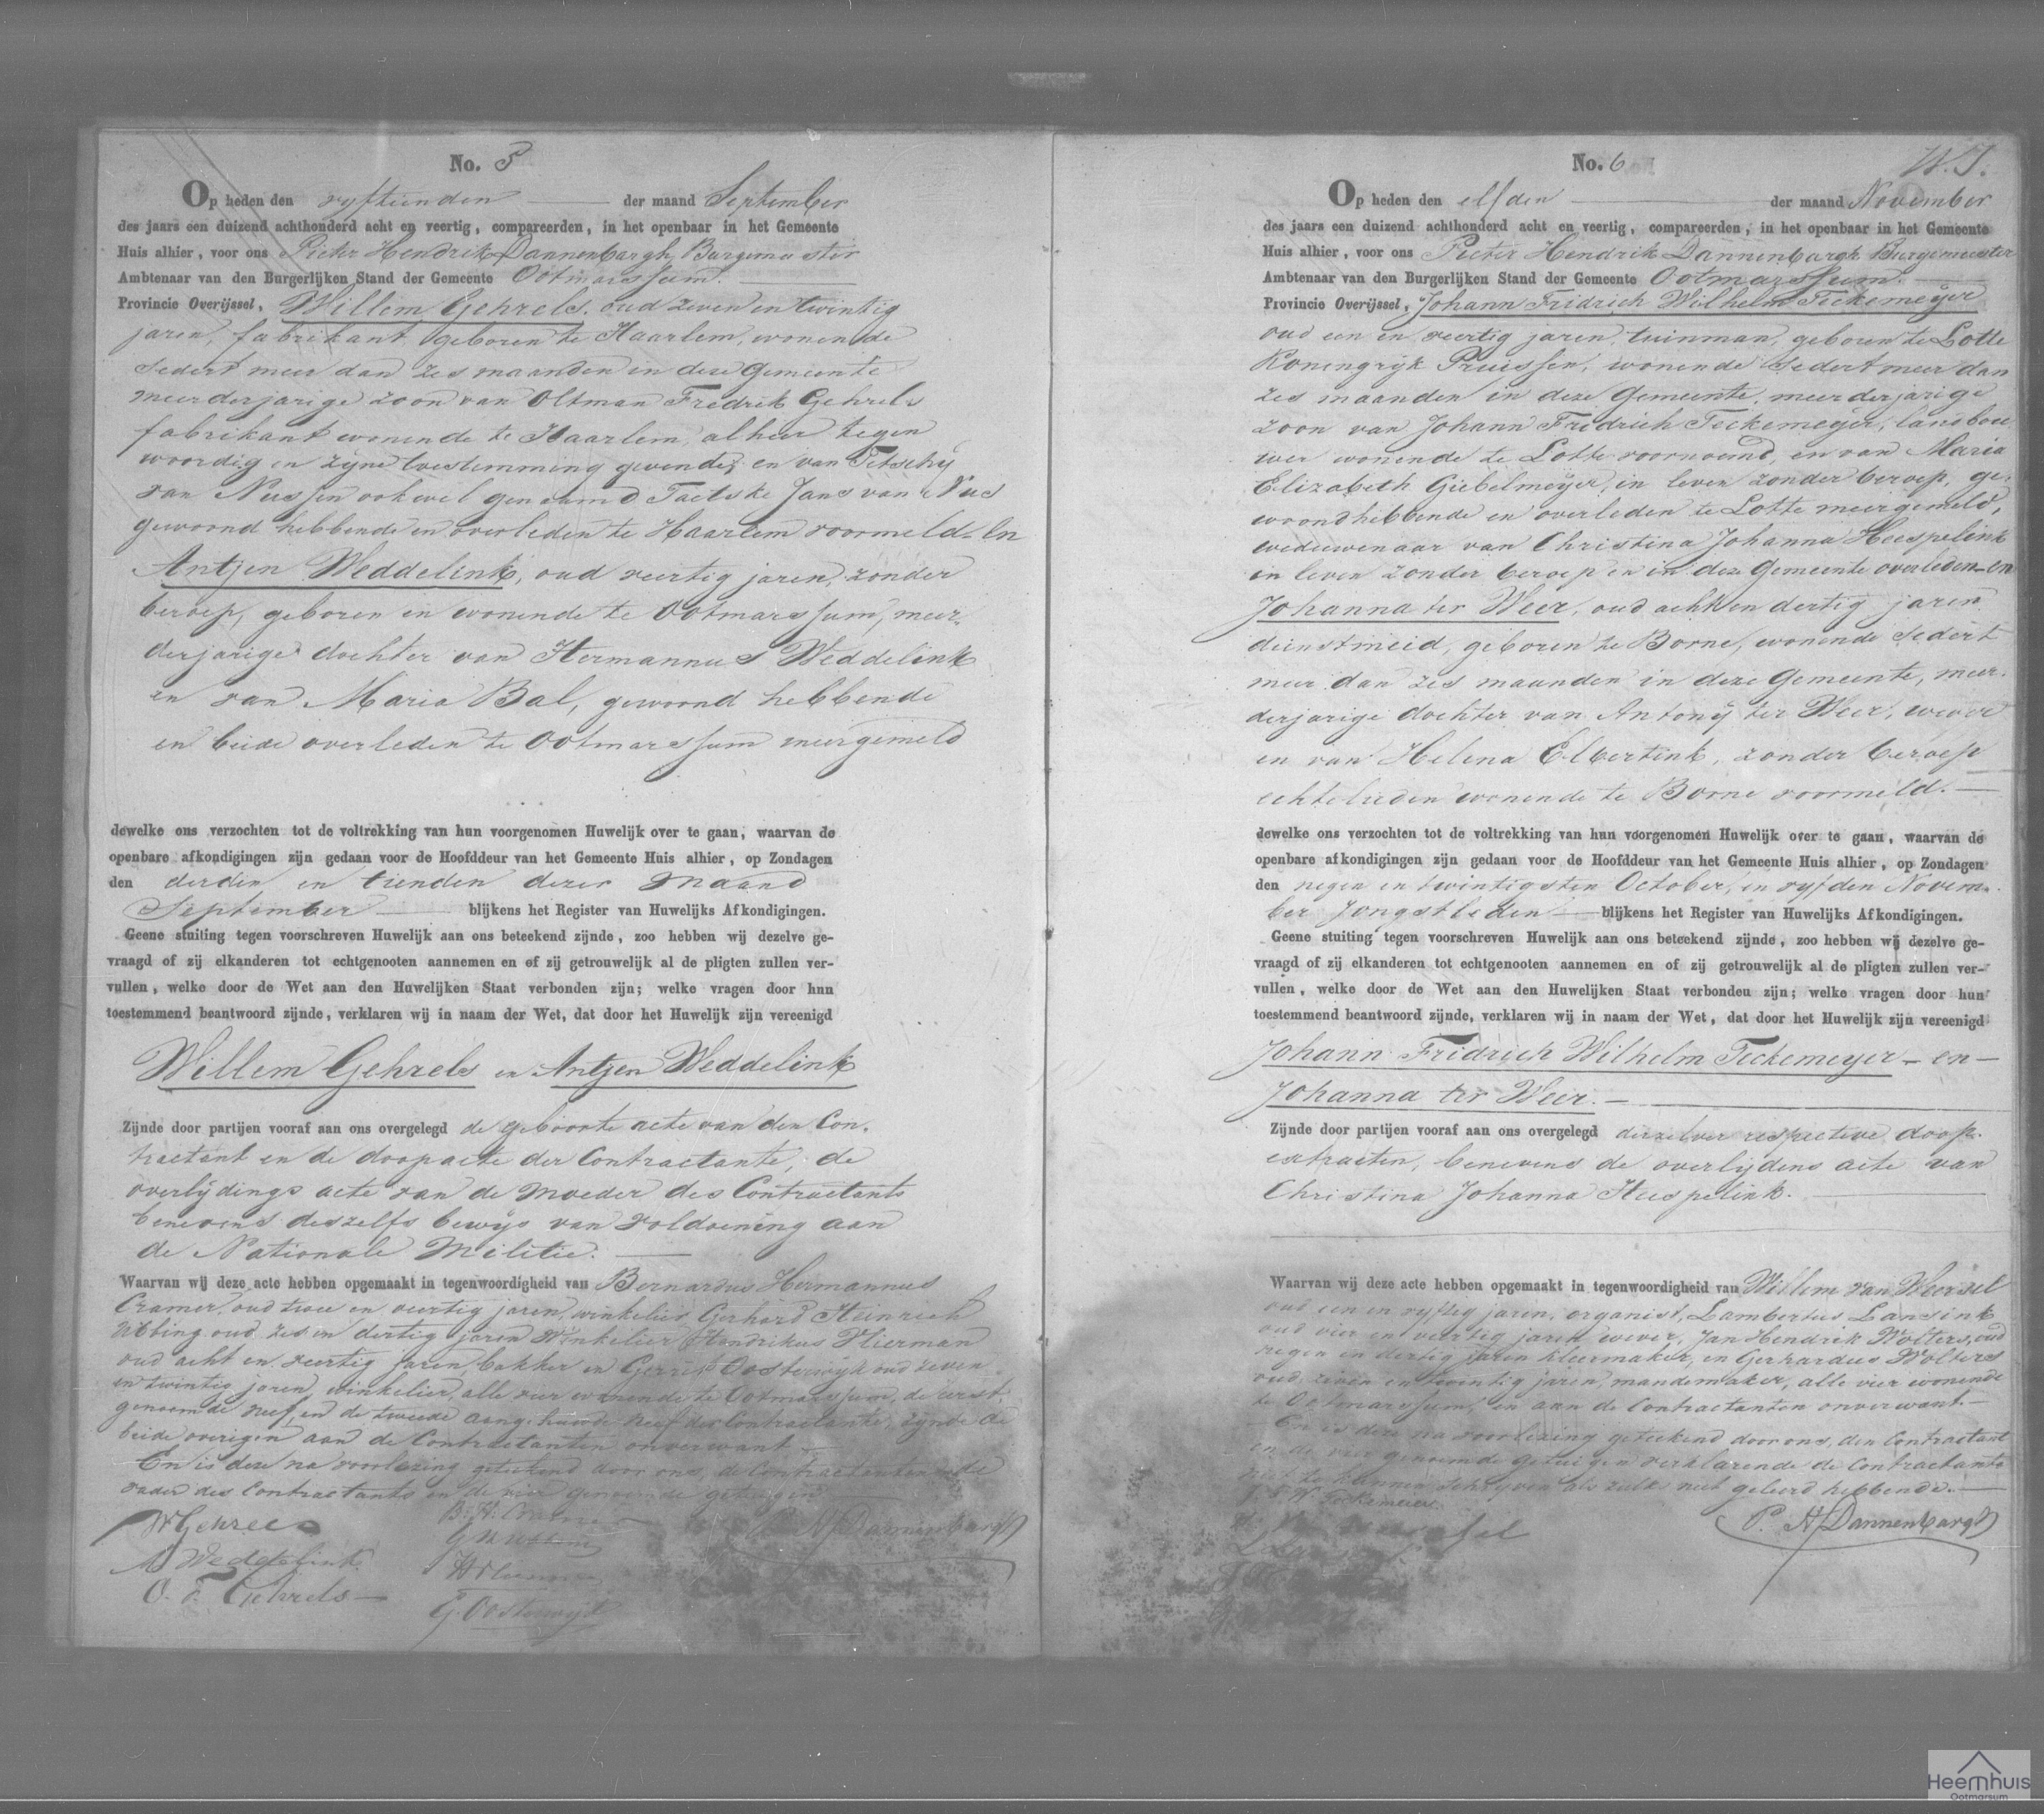 No. 5
Op heden den vyftienden der maand September
des jaars een duizend achthonderd acht en veertig, compareerden, in het openbaar in het Gemeente
Huis alhier, voor ons Pieter Hendrik Dannenbargh, Burgemeester
Ambtenaar van den Burgerlijken Stand der Gemeente Ootmarssum.
Provincie Overijssel, Willem Gehrels, oud zeven en twintig
jaren, fabrikant, geboren te Haarlem, wonende
sedert meer dan zes maanden in deze Gemeente
meerderjarige zoon van Oltman Fredrik Gehrels
fabrikant wonende te Haarlem, alhier tegen
woordig en zijne toestemming gevende, en van Tetschy
van Nussen ook wel genaamd Taetske Jans van Nus
gewoond hebbende en overleden te Haarlem voormeld. En
Antjen Weddelink, oud veertig jaren, zonder
beroep, geboren en wonende te Ootmarssum, meer-
derjarige dochter van Hermannus Weddelink
en van Maria Bal, gewoond hebbende
en beide overleden te Ootmarssum meergemeld
dewelke ons verzochten tot de voltrekking van hun voorgenomen Huwelijk over te gaan, waarvan de
openbare afkondigingen zijn gedaan voor de Hoofddeur van het Gemeente Huis alhier, op Zondagen
den derden en tienden dezer maand
September blijkens het Register van Huwelijks Afkondigingen.
Geene stuiting tegen voorschreven Huwelijk aan ons beteekend zijnde, zoo hebben wij dezelve ge-
vraagd of zij elkanderen tot echtgenooten aannemen en of zij getrouwelijk al de pligten zullen ver-
vullen, welke door de Wet aan den Huwelijken Staat verbonden zijn; welke vragen door hun
toestemmend beantwoord zijnde, verklaren wij in naam der Wet, dat door het Huwelijk zijn vereenigd
Willem Gehrels en Antjen Weddelink
Zijnde door partijen vooraf aan ons overgelegd de geboorte acte van den Con-
tractant en de doopacte der Contractante, de
overlydings acte van de moeder des Contractants
benevens deszelfs bewys van voldoening aan
de Nationale Militie.
Waarvan wij deze acte hebben opgemaakt in tegenwoordigheid van Bernardus Hermannus
Cramer, oud twee en veertig jaren, winkelier, Gerhard Heinrich
Ubbing oud zes en dertig jaren winkelier, Hendrikus Vlierman
oud acht en veertig jaren, bakker en Gerrit Oosterwyk oud zeven
en twintig jaren, winkelier, alle vier wonende te Ootmarssum, de eerst
genoemde neef, en de tweede aang. huwde neef der Contractante, zynde de
beide overigen aan de Contractanten onverwant.
En is deze na voorlezing geteekend door ons, de Contractanten, de
vader des Contractants en de vier genoemde getuigen
W Gehrels
B: H: Cramer
P. H. Dannenbargh
A Weddelink
O. F. Gehrels
G. Oosterwijk
No. 6
W. J.
Op heden den elfden der maand November
des jaars een duizend achthonderd acht en veertig, compareerden, in het openbaar in het Gemeente
Huis alhier, voor ons Pieter Hendrik Dannenbargh Burgemeester
Ambtenaar van den Burgerlijken Stand der Gemeente Ootmarssum.
Provincie Overijssel, Johann Fridrich Wilhelm Teckemeyer
oud een en veertig jaren, tuinman, geboren te Lotte
Koningryk Pruissen, wonende sedert meer dan
zes maanden in deze Gemeente, meerderjarige
zoon van Johann Fridrich Teckemeyer, landbou
wer wonende te Lotte voornoemd, en van Maria
Elizabeth Giebelmeyer, in leven zonder beroep, ge-
woond hebbende en overleden te Lotte meergemeld,
weduwenaar van Christina Johanna Heespelink
in leven zonder beroep en in deze Gemeente overleden en
Johanna ter Weer, oud acht en dertig jaren
dienstmeid, geboren te Borne, wonende sedert
meer dan zes maanden in deze Gemeente, meer-
derjarige dochter van Antony ter Weer, wever
en van Helena Elbertink, zonder beroep
echtelieden wonende te Borne voormeld.
dewelke ons verzochten tot de voltrekking van hun voorgenomen Huwelijk over te gaan, waarvan de
openbare afkondigingen zijn gedaan voor de Hoofddeur van het Gemeente Huis alhier, op Zondagen
den negen en twintigsten October, en vyfden Novem-
ber Jongstleden blijkens het Register van Huwelijks Afkondigingen.
Geene stuiting tegen voorschreven Huwelijk aan ons beteekend zijnde, zoo hebben wij dezelve ge-
vraagd of zij elkanderen tot echtgenooten aannemen en of zij getrouwelijk al de pligten zullen ver-
vullen, welke door de Wet aan den Huwelijken Staat verbonden zijn; welke vragen door hun
toestemmend beantwoord zijnde, verklaren wij in naam der Wet, dat door het Huwelijk zijn vereenigd
Johann Fridrich Wilhelm Teckemeyer en
Johanna ter Weer.
Zijnde door partijen vooraf aan ons overgelegd derzelver respective doop-
extracten, benevens de overlydens acte van
Christina Johanna Heespelink.
Waarvan wij deze acte hebben opgemaakt in tegenwoordigheid van Willem van Weersel
oud een en vyftig jaren, organist, Lambertus Lansink
oud vier en veertig jaren wever, Jan Hendrik Wolters, oud
negen en dertig jaren kleermaker, en Gerhardus Wolters
oud zeven en twintig jaren, mandemaker, alle vier wonende
te Ootmarssum, en aan de Contractanten onverwant.
En is deze na voorlezing geteekend door ons, den Contractant
en de vier genoemde getuigen verklarende de Contractante
niet te kunnen schryven als zulks niet geleerd hebbende.
J. F. W. Teckemeier
P. H. Dannenbargh
Heemhuis
Ootmarsum